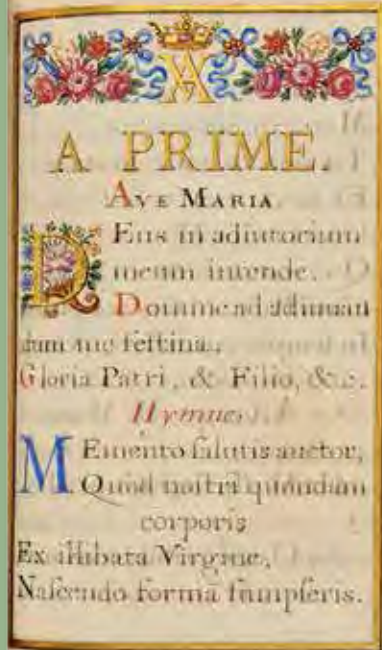 A PRIME.
AVE MARIA.
DEus in adiutorium
meum intende.
Domine ad adiuuan
dum me festina.
Gloria Patri, & Filio, &c.
Hymne.
MEmento salutis auctor,
Quod nostri quondam
corporis
Ex illibata Virgine,
Nascendo formã sumpseris.